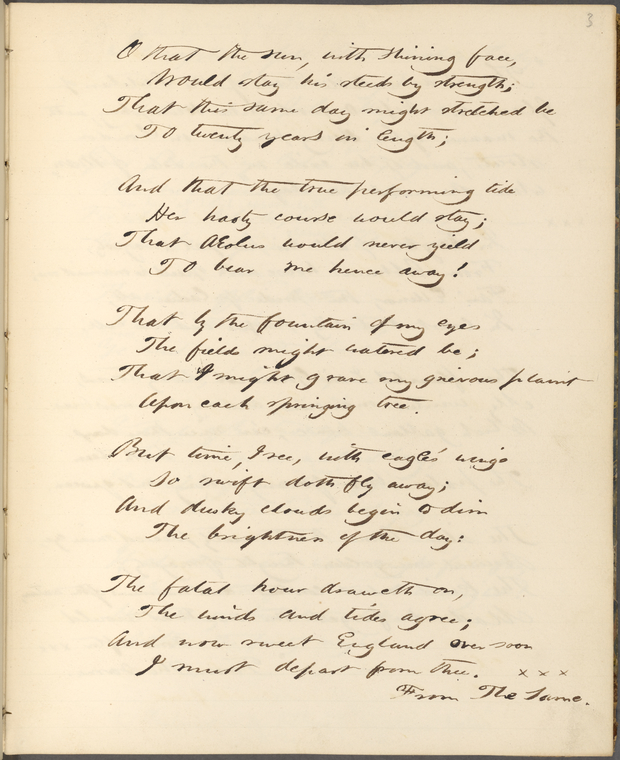 3
O that the sun, with shining face,
Would stay his steeds by strength;
That this same day might stretched be
To twenty years in length;
And that the true performing tide
Her hasty course would stay;
That Æolus would never yield
To bear me hence away!
That by the fountain of my eyes
The fields might watered be;
That I might grave my grievous plaint
Upon each springing tree.
But time, I see, with eagle's wings
So swift doth fly away;
And dusky clouds begin to dim
The brightness of the day:
The fatal hour draweth on,
The winds and tides agree;
And now sweet England over soon
I must depart from thee. x x x
From The Same.